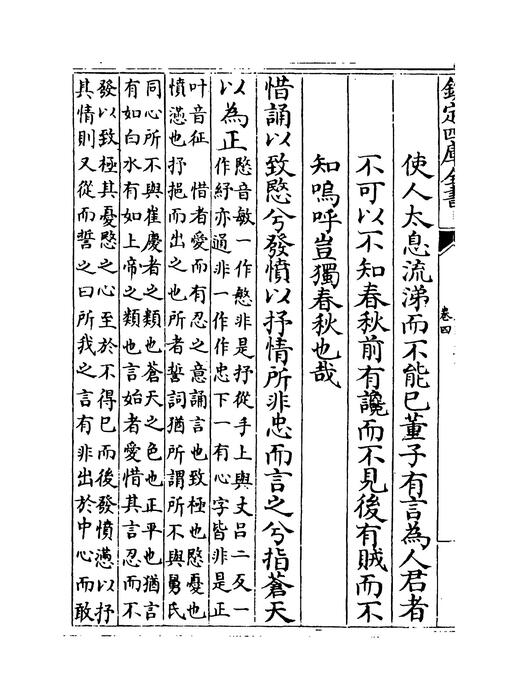 欽定四庫全書
卷四
使人太息流涕而不能已董子有言為人君者
不可以不知春秋前有讒而不見後有賊而不
知嗚呼豈獨春秋也哉
惜誦以致愍兮發憤以抒情所非忠而言之兮指蒼天
以為正
愍音敏一作慜非是抒從手上與丈呂二反一
作紓亦通非一作作忠下一有心字皆非是正
叶音征 惜者愛而有忍之意誦言也致極也愍憂也
憤懣也抒挹而出之也所者誓詞猶所謂所不與舅氏
同心所不與崔慶者之類也蒼天之色也正平也猶言
有如白水有如上帝之類也言始者愛惜其言忍而不
發以致極其憂愍之心至於不得已而後發憤懣以抒
其情則又從而誓之曰所我之言有非出於中心而敢